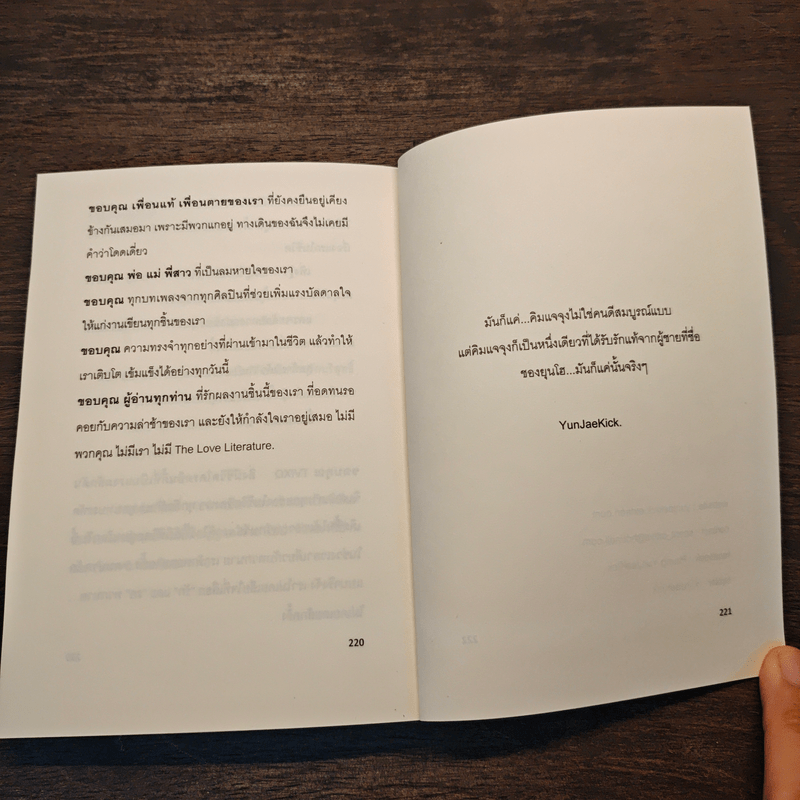 ขอบคุณ เพื่อนแท้ เพื่อนตายของเรา ที่ยังคงยืนอยู่เคียง
ข้างกันเสมอมา เพราะมีพวกแกอยู่ ทางเดินของฉันจึงไม่เคยมี
คำว่าโดดเดี่ยว
ขอบคุณ พ่อ แม่ พี่สาว ที่เป็นลมหายใจของเรา
ขอบคุณ ทุกบทเพลงจากทุกศิลปินที่ช่วยเพิ่มแรงบัลดาลใจ
ให้แก่งานเขียนทุกชิ้นของเรา
ขอบคุณ ความทรงจำทุกอย่างที่ผ่านเข้ามาในชีวิต แล้วทำให้
เราเติบโต เข้มแข็งได้อย่างทุกวันนี้
ขอบคุณ ผู้อ่านทุกท่าน ที่รักผลงานชิ้นนี้ของเรา ที่อดทนรอ
คอยกับความล่าช้าของเรา และยังให้กำลังใจเราอยู่เสมอ ไม่มี
พวกคุณ ไม่มีเรา ไม่มี The Love Literature.
220
มันก็แค่...คิมแจจุงไม่ใช่คนดีสมบูรณ์แบบ
แต่คิมแจจุงก็เป็นหนึ่งเดียวที่ได้รับรักแท้จากผู้ชายที่ชื่อ
ชองยุนโฮ...มันก็แค่นั้นจริงๆ
YunJaeKick.
221